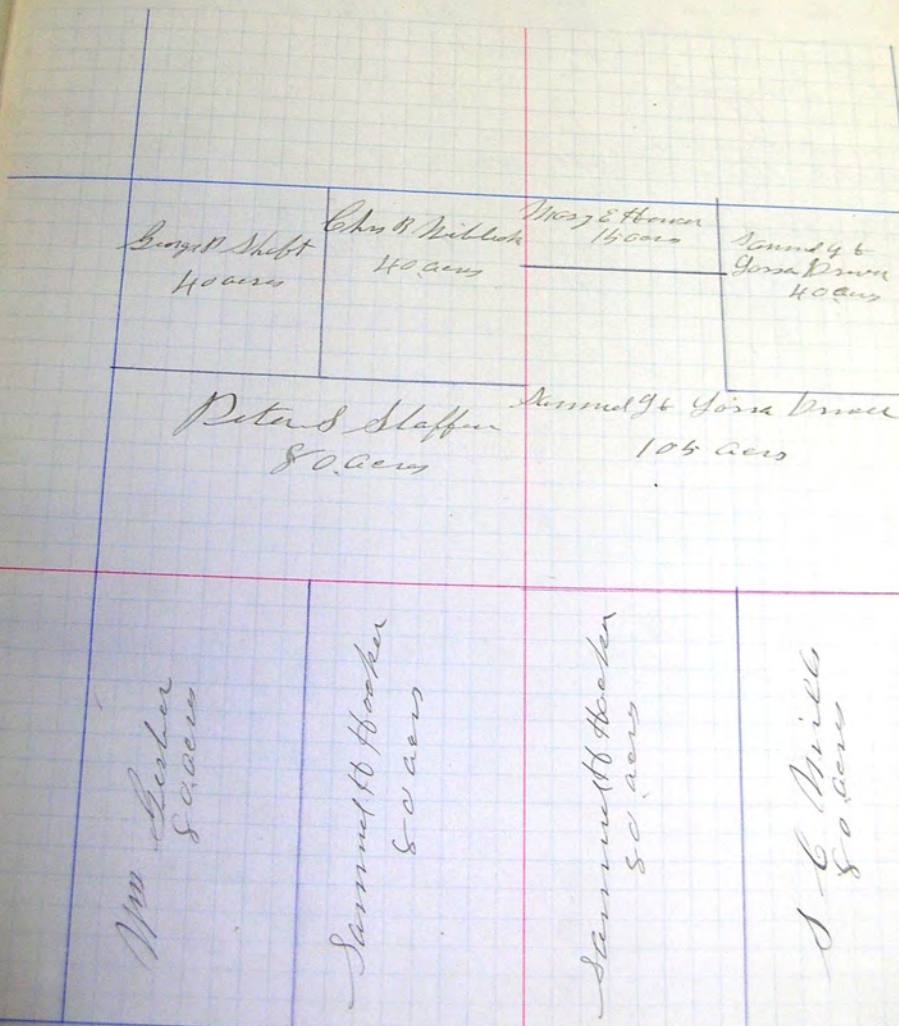 George P Shift
40 acres
Chs R Niblick
40 acres
Mary E Hower
15 acres
Samuel G &
40 acres
Peter S Shaffer
80 acres
Samuel G &
105 acres
Wm Gerber
80 acres
Samuel H Hooker
80 acres
Samuel H Hooker
80 acres
S C Mills
80 acres